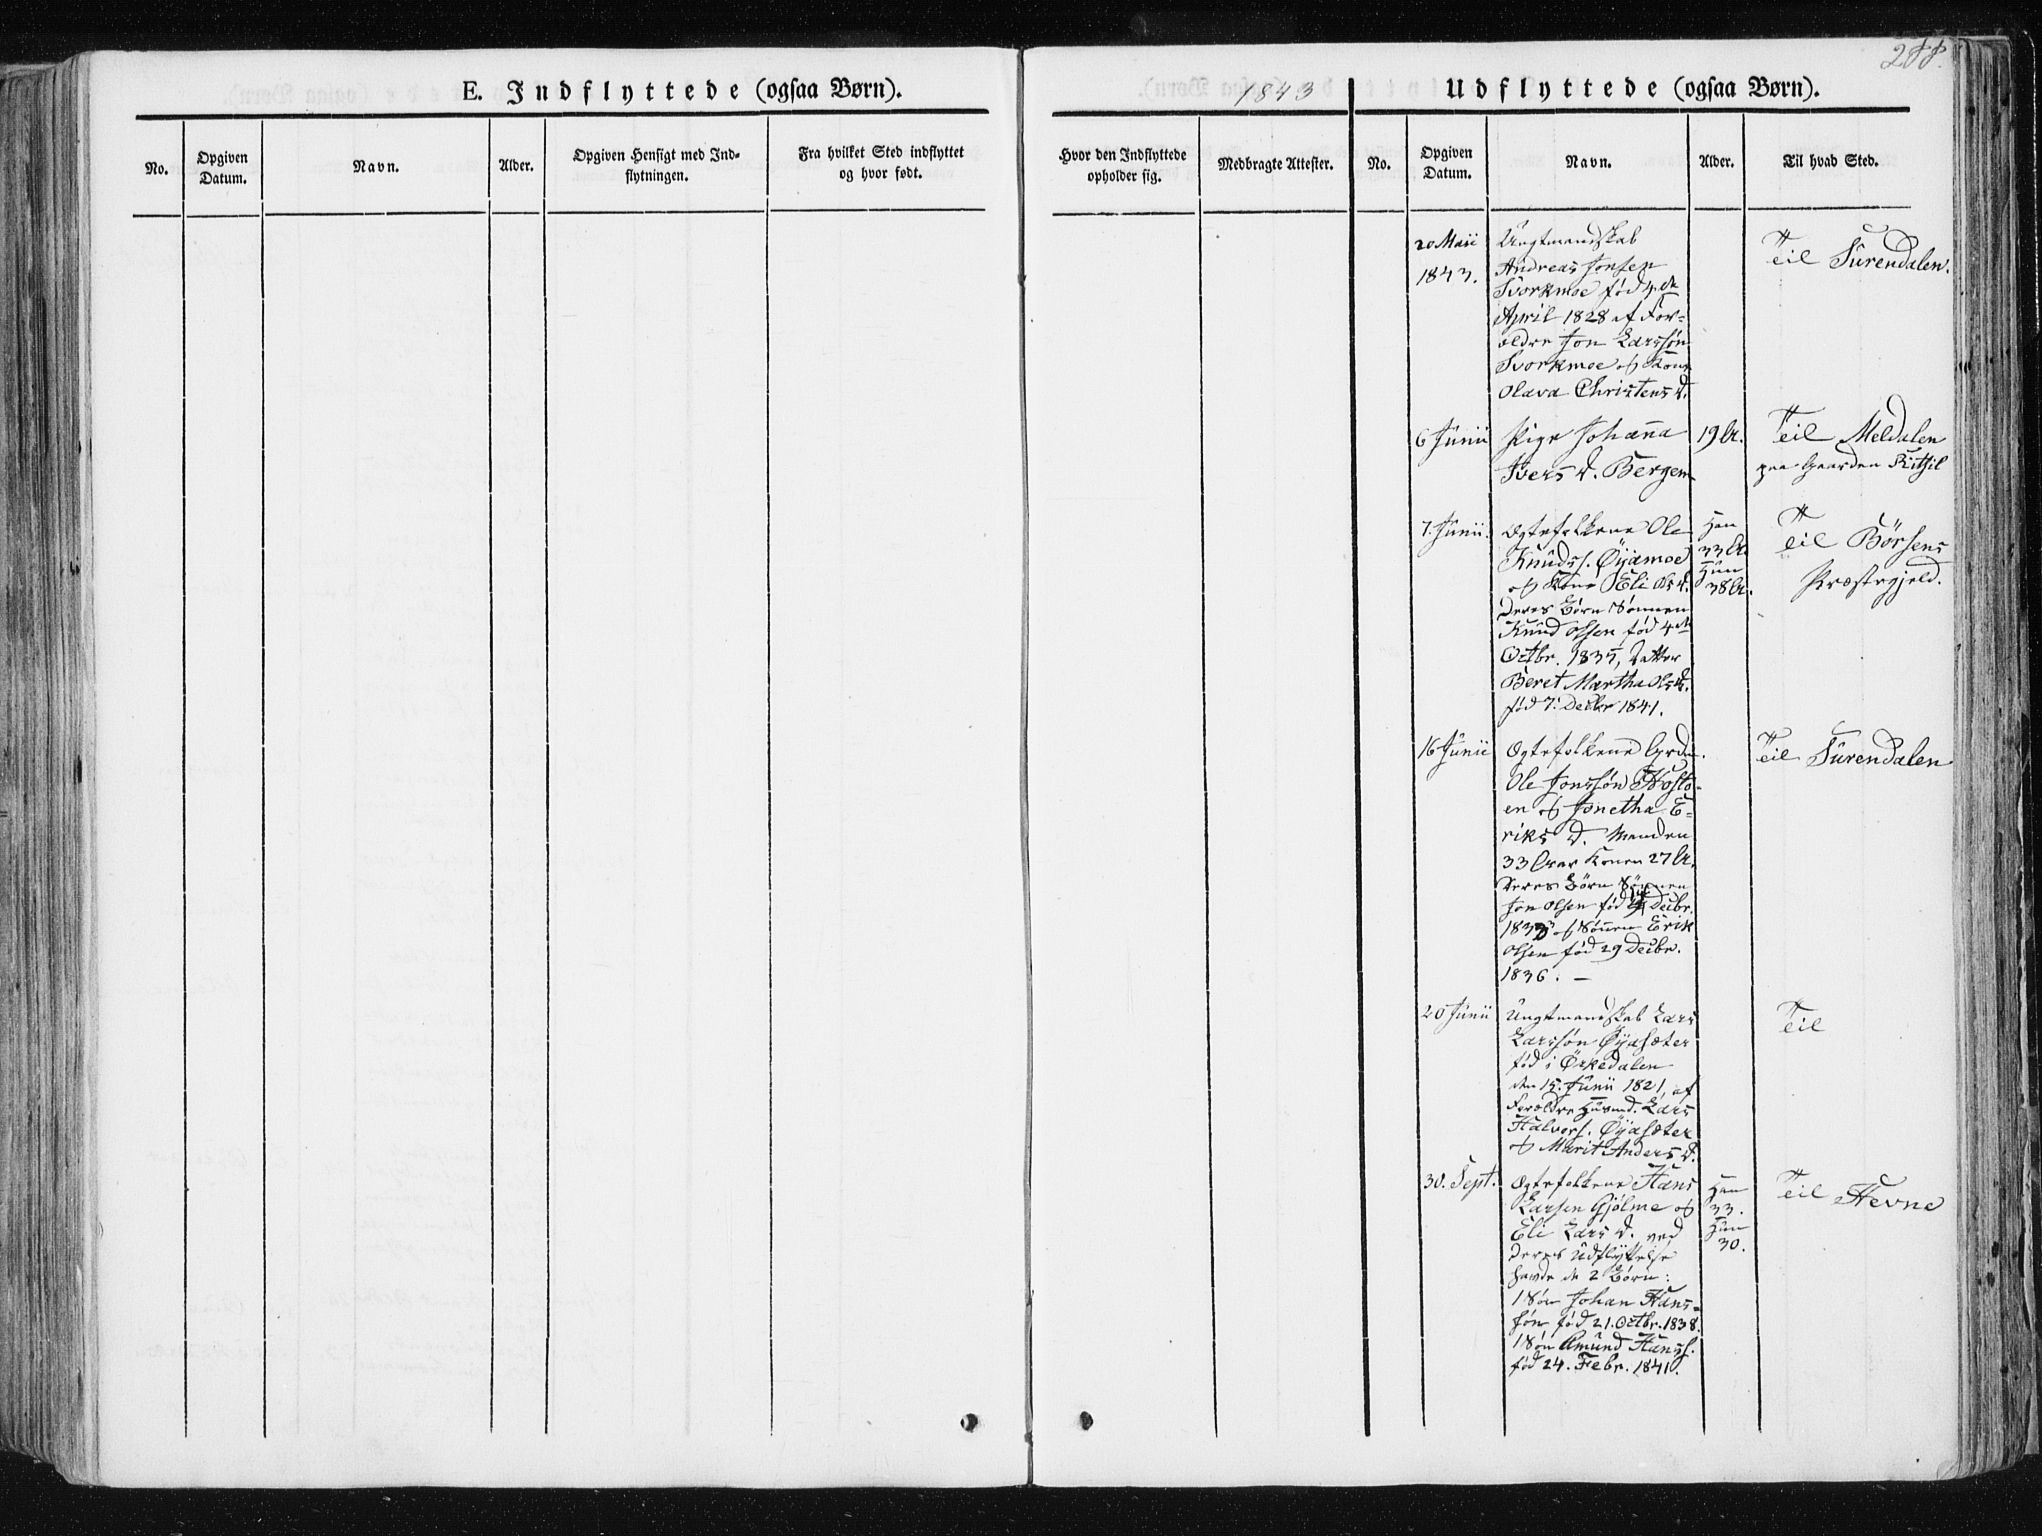 288.
E. Indflyttede (ogsaa Børn).
1843
Udflyttede (ogsaa Børn).
No.
Opgiven Datum.
Navn.
Alder.
Opgiven Hensigt med Ind-
flytningen.
Fra hvilket Sted indflyttet
og hvor født.
Hvor den Indflyttede
opholder sig.
Medbragte Attester.
No.
Opgiven
Datum.
Navn.
Alder.
Til hvad Sted.
20 Maii
1843.
Ungtmandskab
Andreas Jonsen
Svorkmoe fød 4de
April 1828 af For-
ældre Jon Larssøn
Svorkmoe og Kone
Olava Christensd.
Teil Surendalen.
6 Junii
Pige Johanna
Iversd. Bergem
19 Ar.
Teil Meldalen
paa Gaarden
7. Junii.
Ægtefolkene Ole
Knuds. Øyamoe
og Kone Eli Olsd.
deres Børn Sønnen
Knud Olsen fød 4de
Octbr. 1835, Datter
Beret Martha Olsd.
fød 7. Decbr 1841.
Han
33 Ar.
Hun
38 Ar.
Teil Børsens
Præstegjeld.
16 Junii
Ægtefolkene Grdm.
Ole Jonssøn Hosto-
en og Jonetha E-
riksd. Manden
33 Aar Konen 27 Ar.
deres Børn Sønnen
Jon Olsen fød Decbr.
1833 og Sønnen Erik
Olsen fød 29 Decbr.
1836. —
Teil Surendalen
20 Junii
Ungtmandskab Lars
Larssøn Øyasæter
fød i Ørkedalen
den 15. Junii 1821, af
Forældre Huusmd. Lars
Halvors. Øyasæter
og Marit Andersd.
Teil
30. Sept.
Ægtefolkene Hans
Larsen Gjølme og
Eli Larsd. ved
deres Udflyttelse
havde de 2 Børn:
1 Søn Johan Hans-
søn fød 21. Octbr. 1838.
1 Søn Amund Hanss.
fød 24. Febr. 1841.
Han
33.
Hun
30.
Teil Hevne